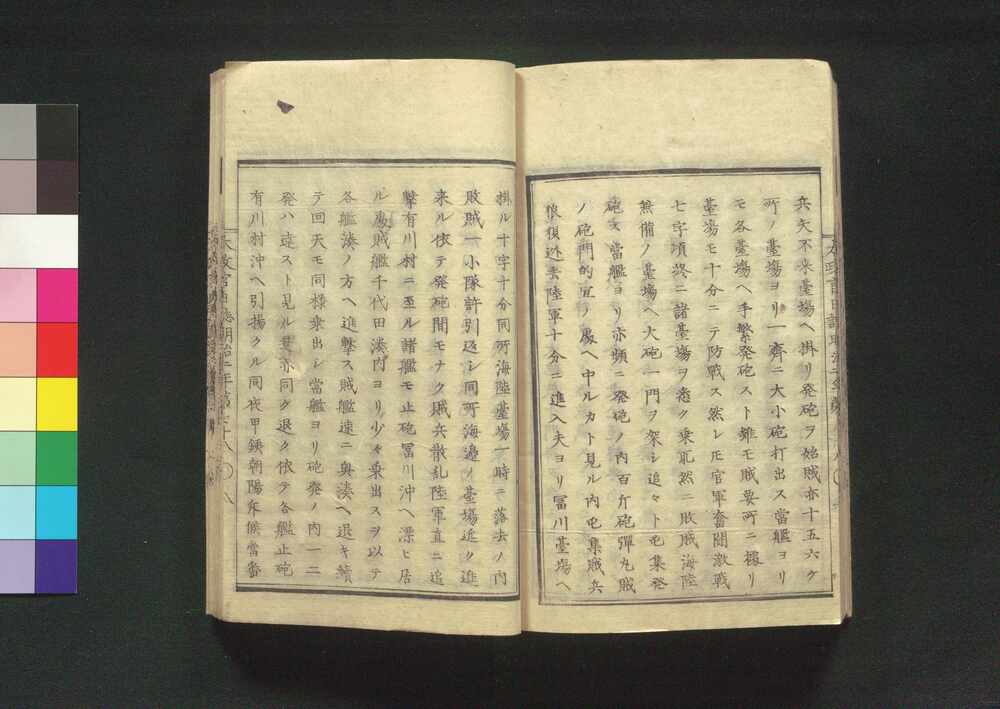 兵矢不来臺場ヘ掛リ発砲ヲ始賊亦十五六ケ
所ノ臺場ヨリ一齊ニ大小砲打出ス當艦ヨリ
モ各臺場ヘ手繁発砲スト雖モ賊要所ニ據リ
臺場モ十分ニテ防戦ス然レ𪜈官軍奮闘激戦
七字頃終ニ諸臺場ヲ悉ク乗取然ニ敗賊海陸
無備ノ臺場ヘ大砲一門ヲ架シ追々ト屯集発
砲ス當艦ヨリ亦頻ニ発砲ノ内百斤砲彈丸賊
ノ砲門的宜ノ處ヘ中ルカト見ル内屯集賊兵
狼狽迯去陸軍十分ニ進入夫ヨリ冨川臺場ヘ
掛ル十字十分同所海陸臺場一時ニ落去ノ内
敗賊一小隊許引返シ同所海邉ノ臺場近ク進
来ル依テ発砲間モナク賊兵散乱陸軍直ニ追
撃有川村ニ至ル諸艦モ止砲冨川沖ヘ漂ヒ居
ル處賊艦千代田湊内ヨリ少々乗出スヲ以テ
各艦湊ノ方ヘ進撃ス賊艦速ニ奥湊ヘ退キ續
テ回天モ同様乗出シ當艦ヨリ砲発ノ内一二
発ハ達スト見ル是亦同ク退ク依テ各艦止砲
有川村沖ヘ引揚クル同夜甲鉄朝陽斥候當番